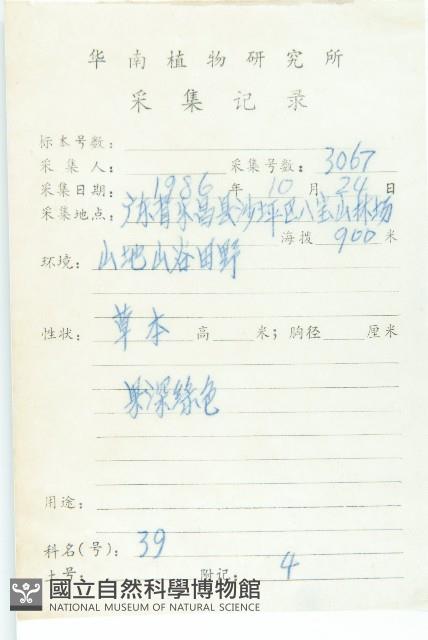 华南植物研究所
采集记录
标本号数：
采集人： 采集号数：3067
采集日期：1986年10月24日
采集地点：广东省乐昌县沙坪区八宝山林场
海拨 900 米
环境：山地山谷田野
性状：草本 高 米；胸径 厘米
果深綠色
用途：
科名(号)：39
土号： 附记：4
國立自然科學博物館
NATIONAL MUSEUM OF NATURAL SCIENCE